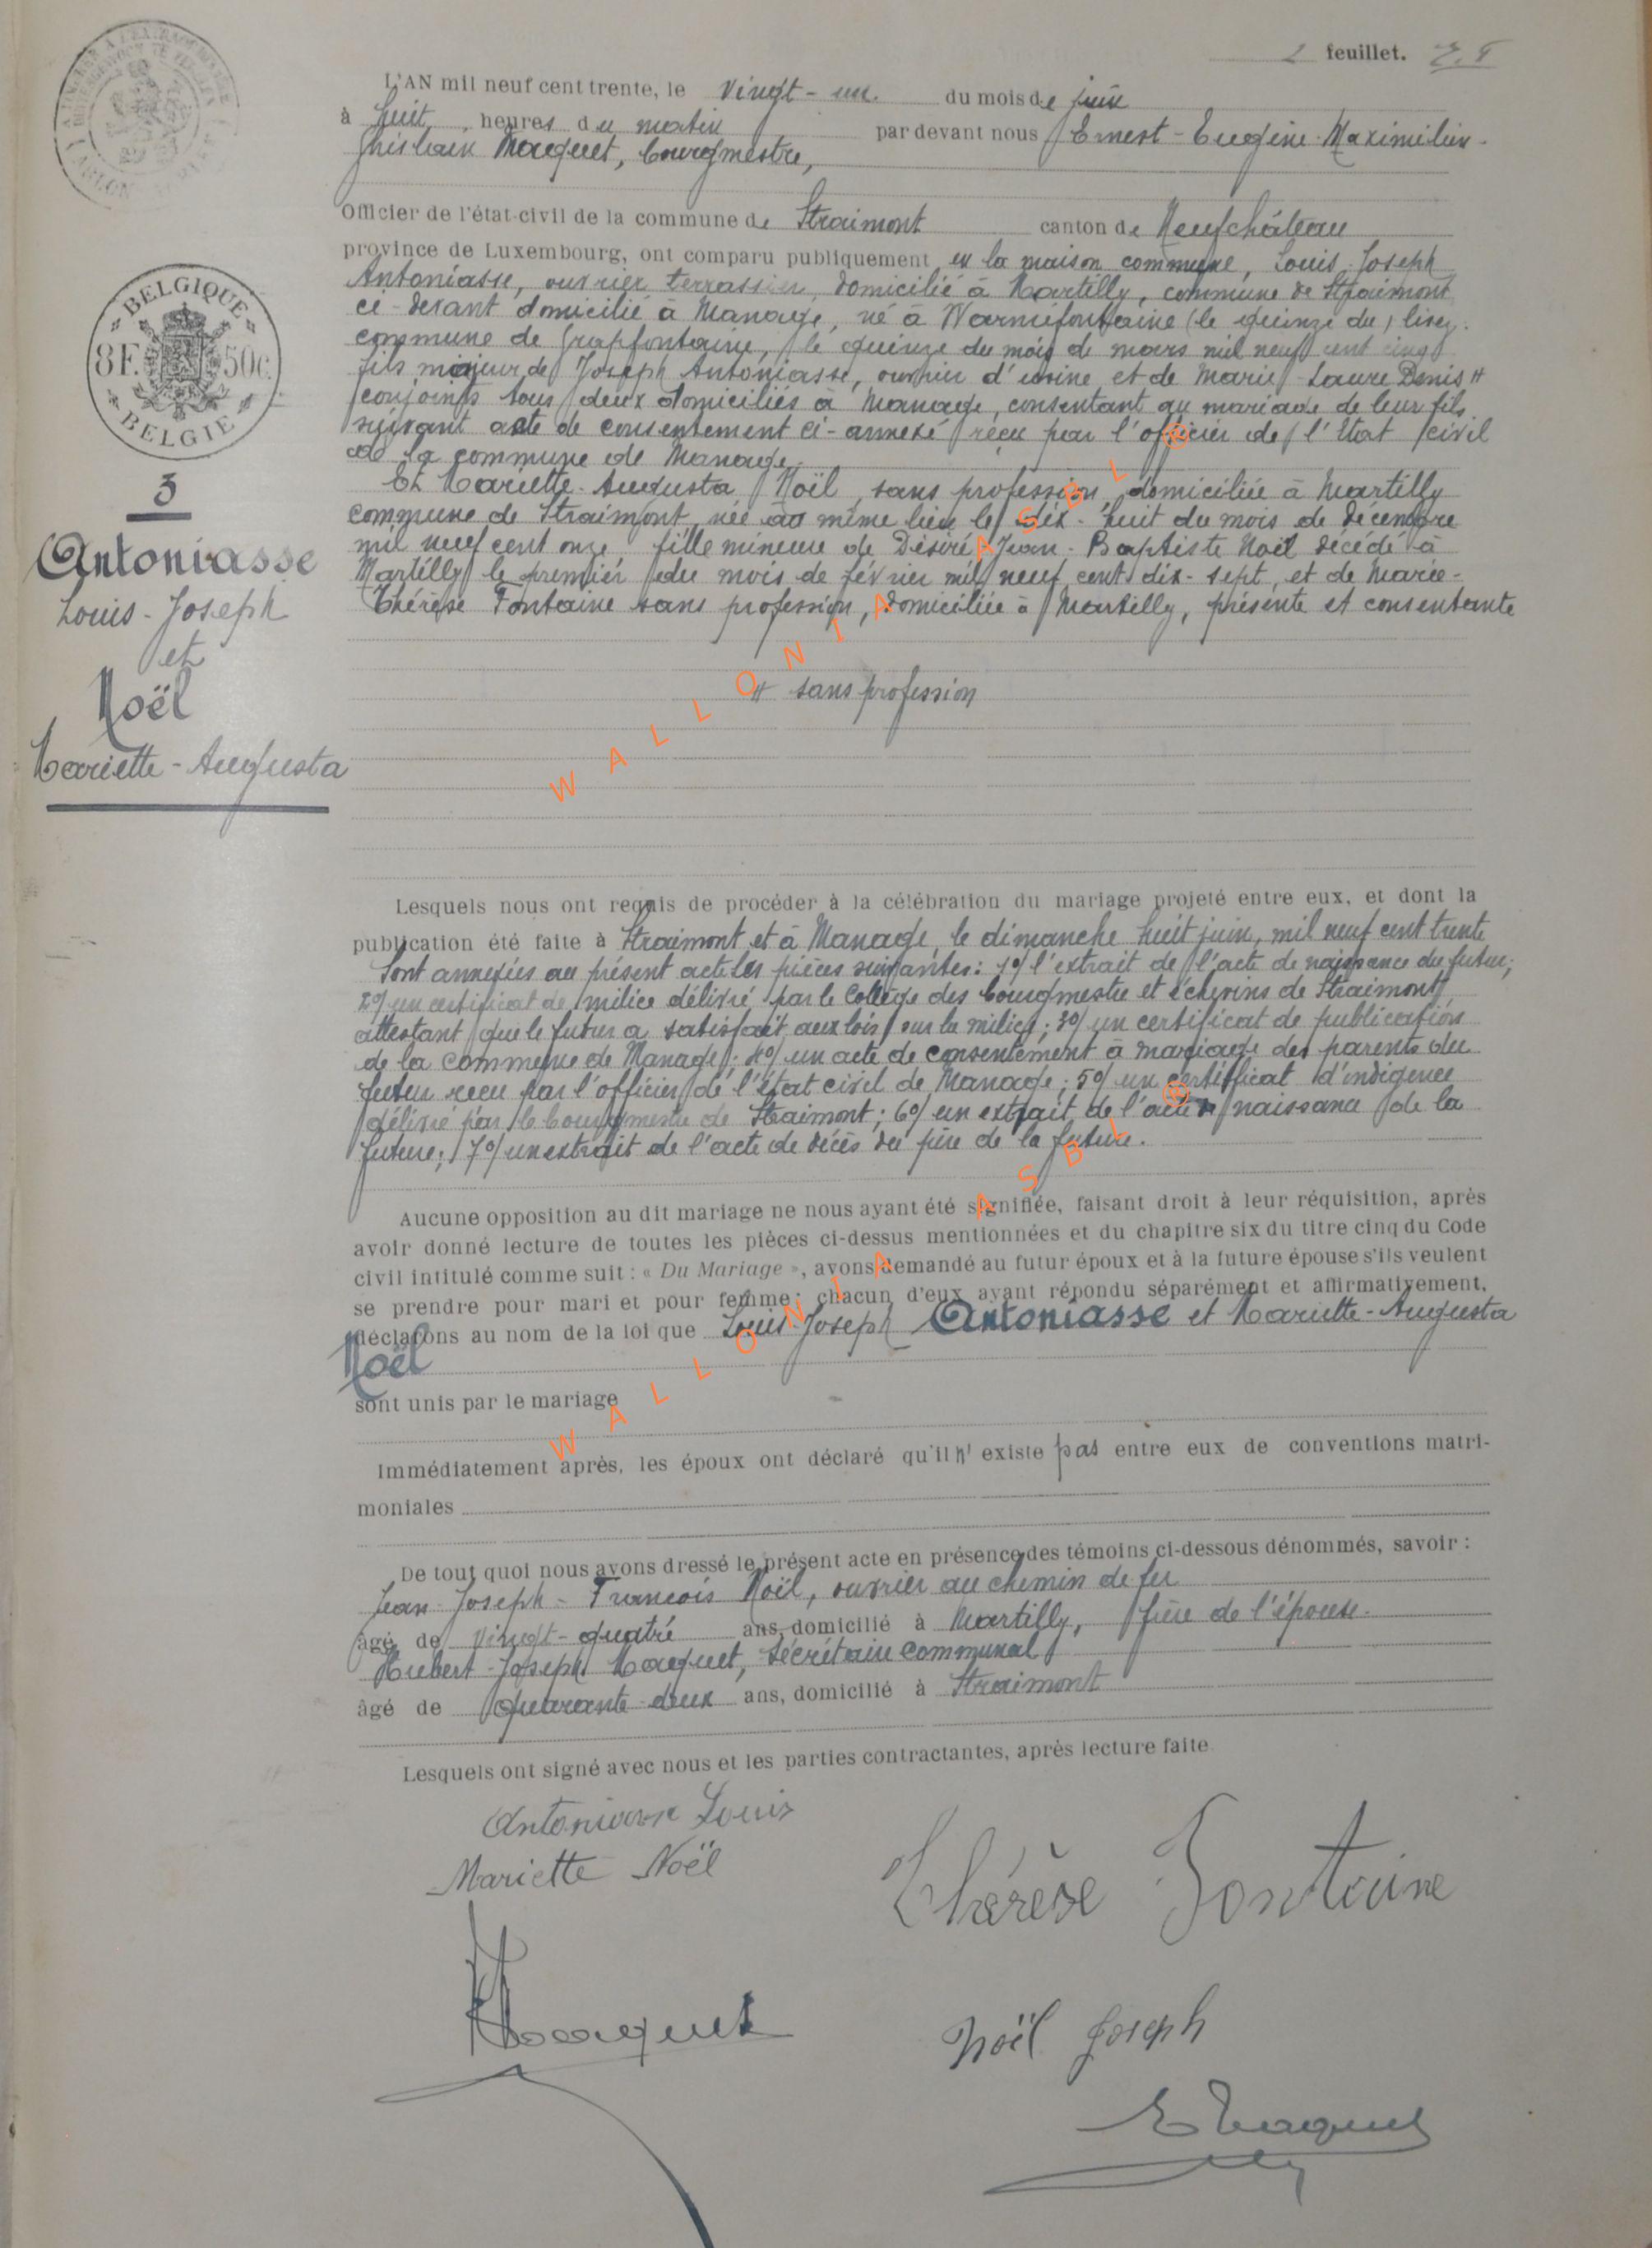 2 feuillet.
L'AN mil neuf cent trente, le vingt-un du mois de juin
à huit heures du matin par devant nous Ernest-Eugène-Maximilien-
Ghislain Maquet, bourgmestre,
Officier de l'état-civil de la commune de Straimont canton de Neufchâteau
province de Luxembourg, ont comparu publiquement en la maison commune, Louis-Joseph
Antoniasse, ouvrier terrassier, domicilié à Martilly, commune de Straimont
ci-devant domicilié à Manage, né à Warmifontaine (le quinze du) lisez:
commune de Grapfontaine, le quinze du mois de mars mil neuf cent cinq
fils majeur de Joseph Antoniasse, ouvrier d'usine et de Marie-Laure Denis #
conjoints tous deux domiciliés à Manage, consentant au mariage de leur fils
suivant acte de consentement ci-annexé reçu par l'officier de l'Etat civil
de la commune de Manage.
Et Mariette-Augusta Noël, sans profession, domiciliée à Martilly
commune de Straimont, née au même lieu le dix-huit du mois de décembre
mil neuf cent onze fille mineure de Désiré-Jean-Baptiste Noël décédé à
Martilly le premier du mois de février mil neuf cent dix-sept, et de Marie-
Thérèse Fontaine sans profession, domiciliée à Martilly, présente et consentante
# sans profession
BELGIQUE
8F. 50c.
BELGIË
3
Antoniasse
Louis-Joseph
et
Noël
Mariette-Augusta
Lesquels nous ont requis de procéder à la célébration du mariage projeté entre eux, et dont la
publication été faite à Straimont et à Manage, le dimanche huit juin, mil neuf cent trente
Sont annexées au présent acte les pièces suivantes: 1º/ l'extrait de l'acte de naissance du futur;
2º/ un certificat de milice délivré par le Collège des bourgmestre et échevins de Straimont
attestant que le futur a satisfait aux lois sur la milice; 3º/ un certificat de publication
de la commune de Manage; 4º/ un acte de consentement à mariage des parents du
futur reçu par l'officier de l'état civil de Manage; 5º/ un certificat d'indigence
délivré par le bourgmestre de Straimont; 6º/ un extrait de l'acte de naissance de la
future; 7º/ un extrait de l'acte de décès du père de la future.
Aucune opposition au dit mariage ne nous ayant été signifiée, faisant droit à leur réquisition, après
avoir donné lecture de toutes les pièces ci-dessus mentionnées et du chapitre six du titre cinq du Code
civil intitulé comme suit : « Du Mariage », avons demandé au futur époux et à la future épouse s'ils veulent
se prendre pour mari et pour femme; chacun d'eux ayant répondu séparément et affirmativement,
déclarons au nom de la loi que Louis-Joseph Antoniasse et Mariette-Augusta
Noël
sont unis par le mariage
Immédiatement après, les époux ont déclaré qu'il n'existe pas entre eux de conventions matri-
moniales
De tout quoi nous avons dressé le présent acte en présence des témoins ci-dessous dénommés, savoir :
Jean-Joseph-François Noël, ouvrier au chemin de fer
âgé de vingt-quatre ans, domicilié à Martilly, frère de l'épouse.
Hubert-Joseph Maquet, secrétaire communal
âgé de quarante-deux ans, domicilié à Straimont
Lesquels ont signé avec nous et les parties contractantes, après lecture faite.
Antoniasse Louis
Mariette Noël
Thérèse Fontaine
HMaquet
Noël Joseph
E Maquet
WALLONIA ASBL ®
WALLONIA ASBL ®